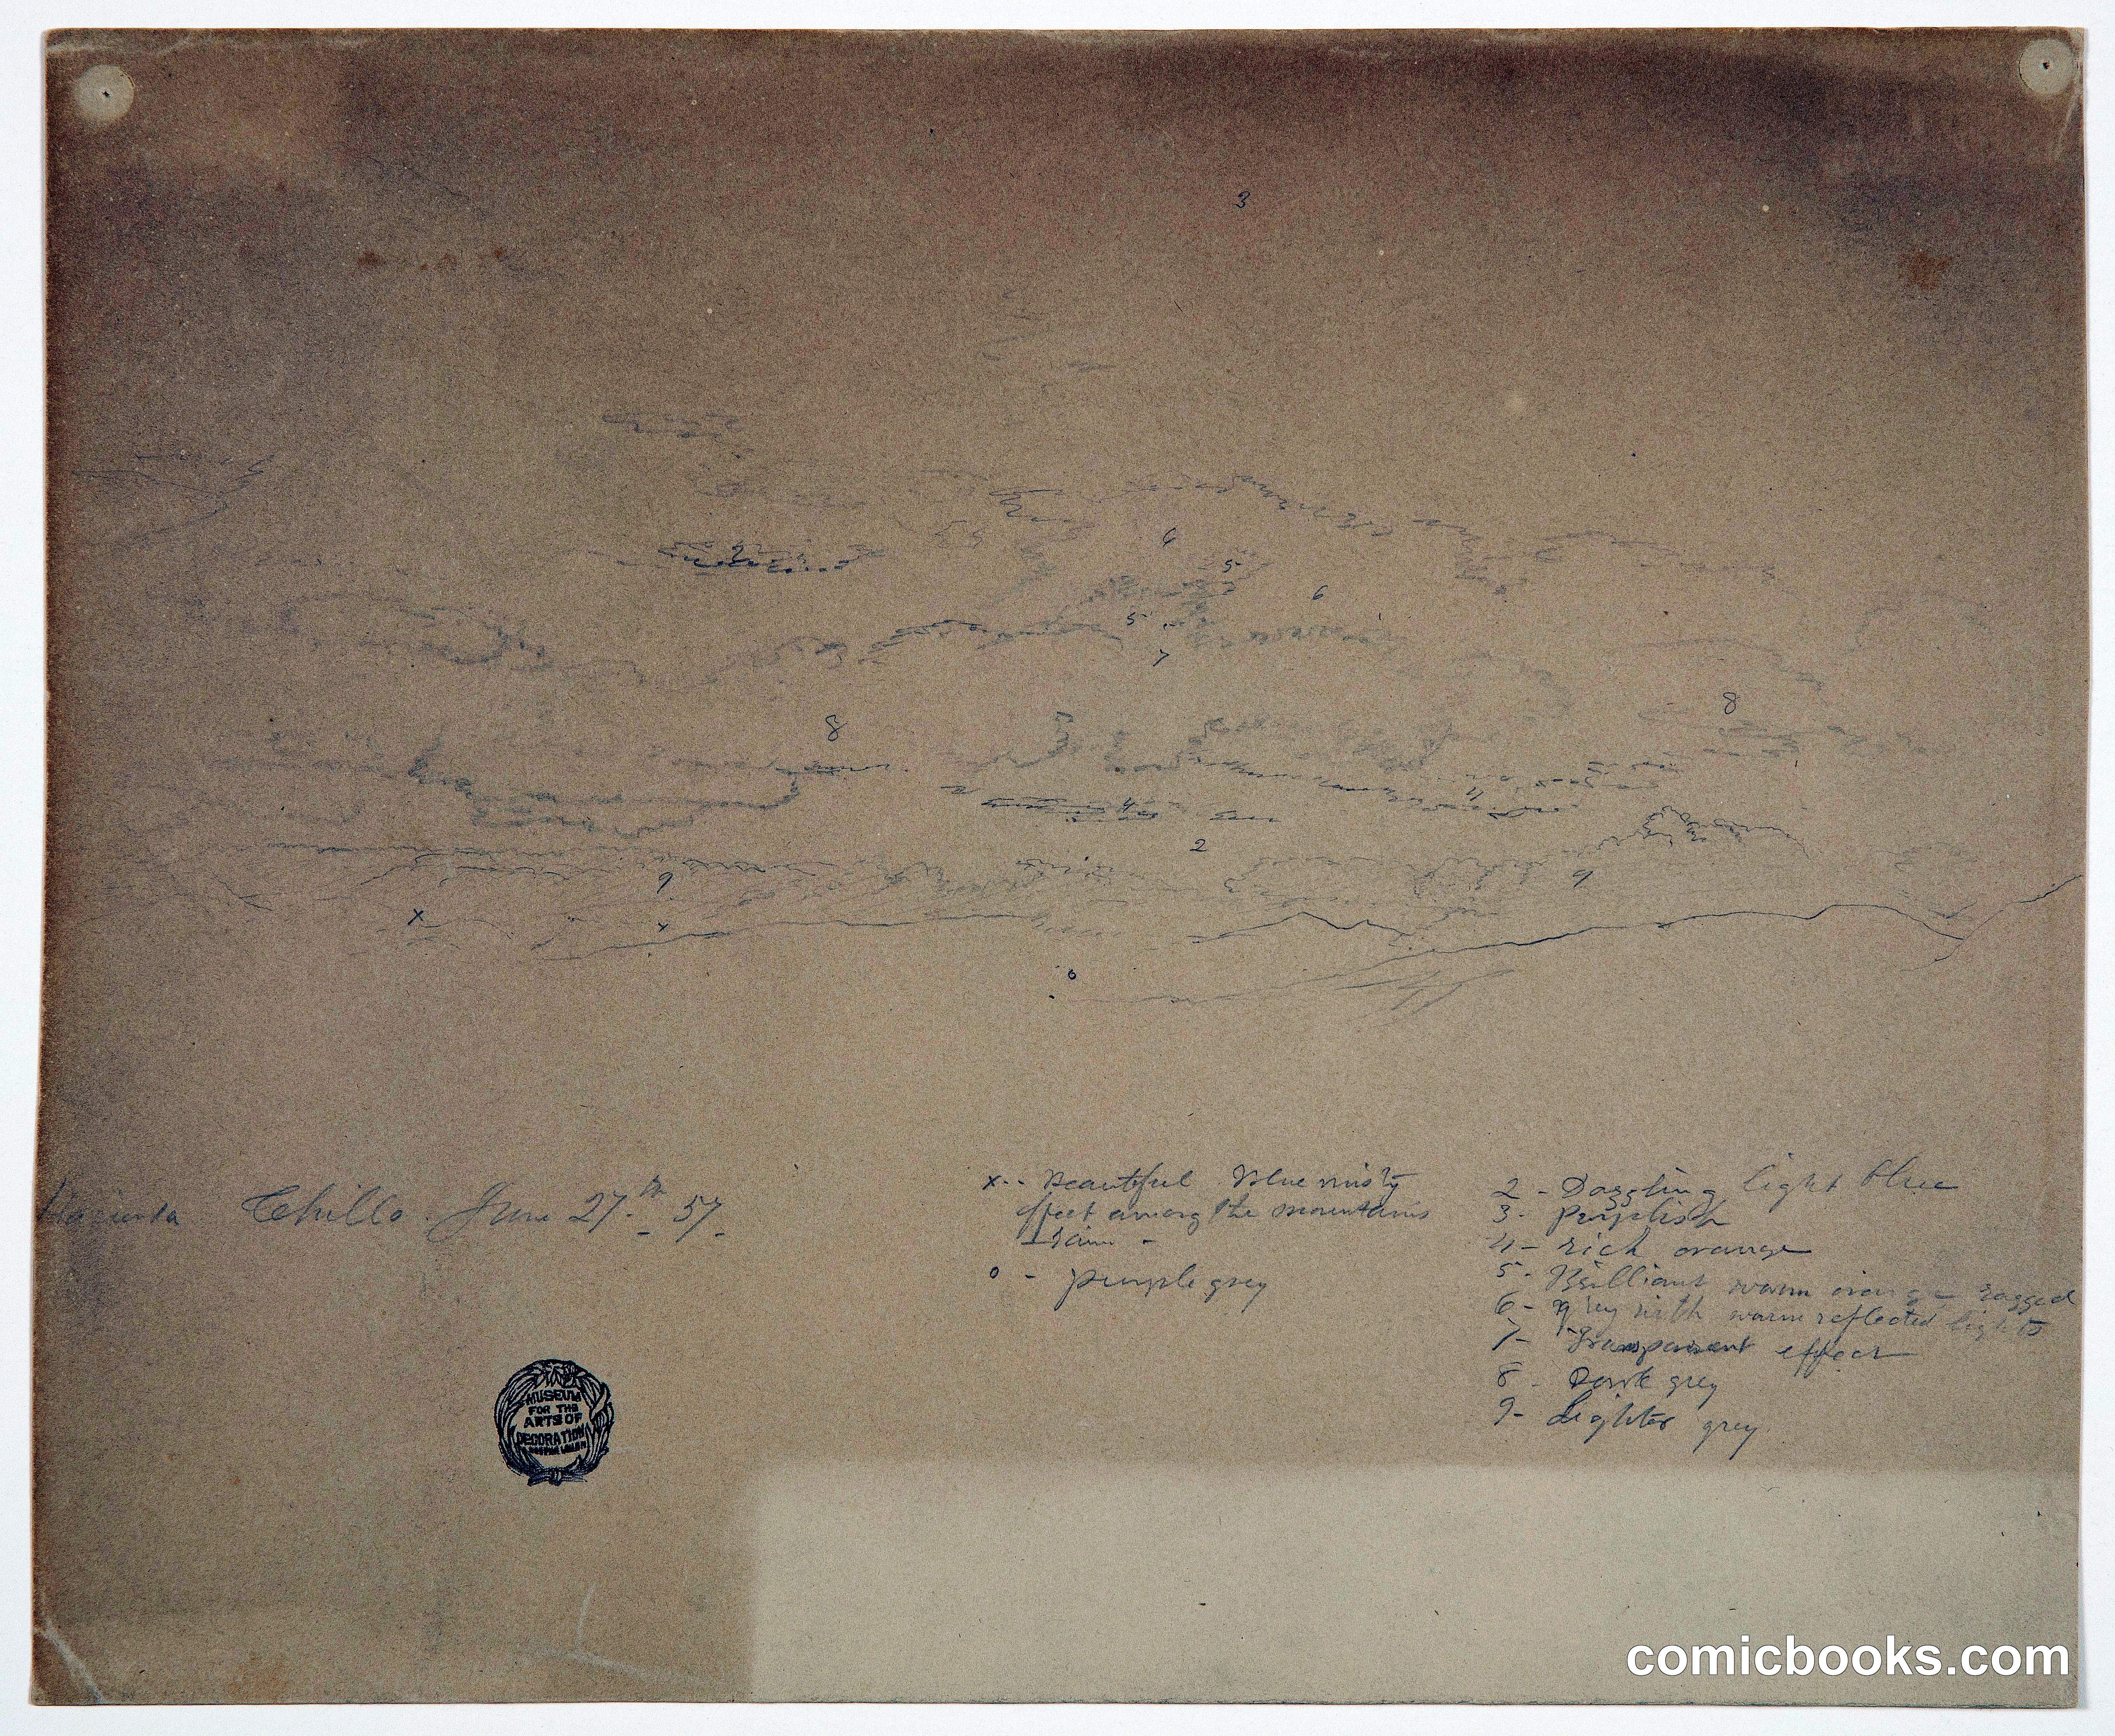 3
6
2
5
6
5
7
8
8
4
4
2
9
9
x
x
o
Hacienda Chillo. June 27th 57.
x-- Beautiful Blue misty
effect among the mountains
o - purple grey
2 - Dazzling light blue
3 - purplish
4 - rich orange
5 - Brilliant warm orange ragged
6 - grey with warm reflected lights
7 - Transparent effect
8 - Dark grey
9 - Lighter grey
MUSEUM
FOR THE
ARTS OF
DECORATION
COOPER UNION
comicbooks.com